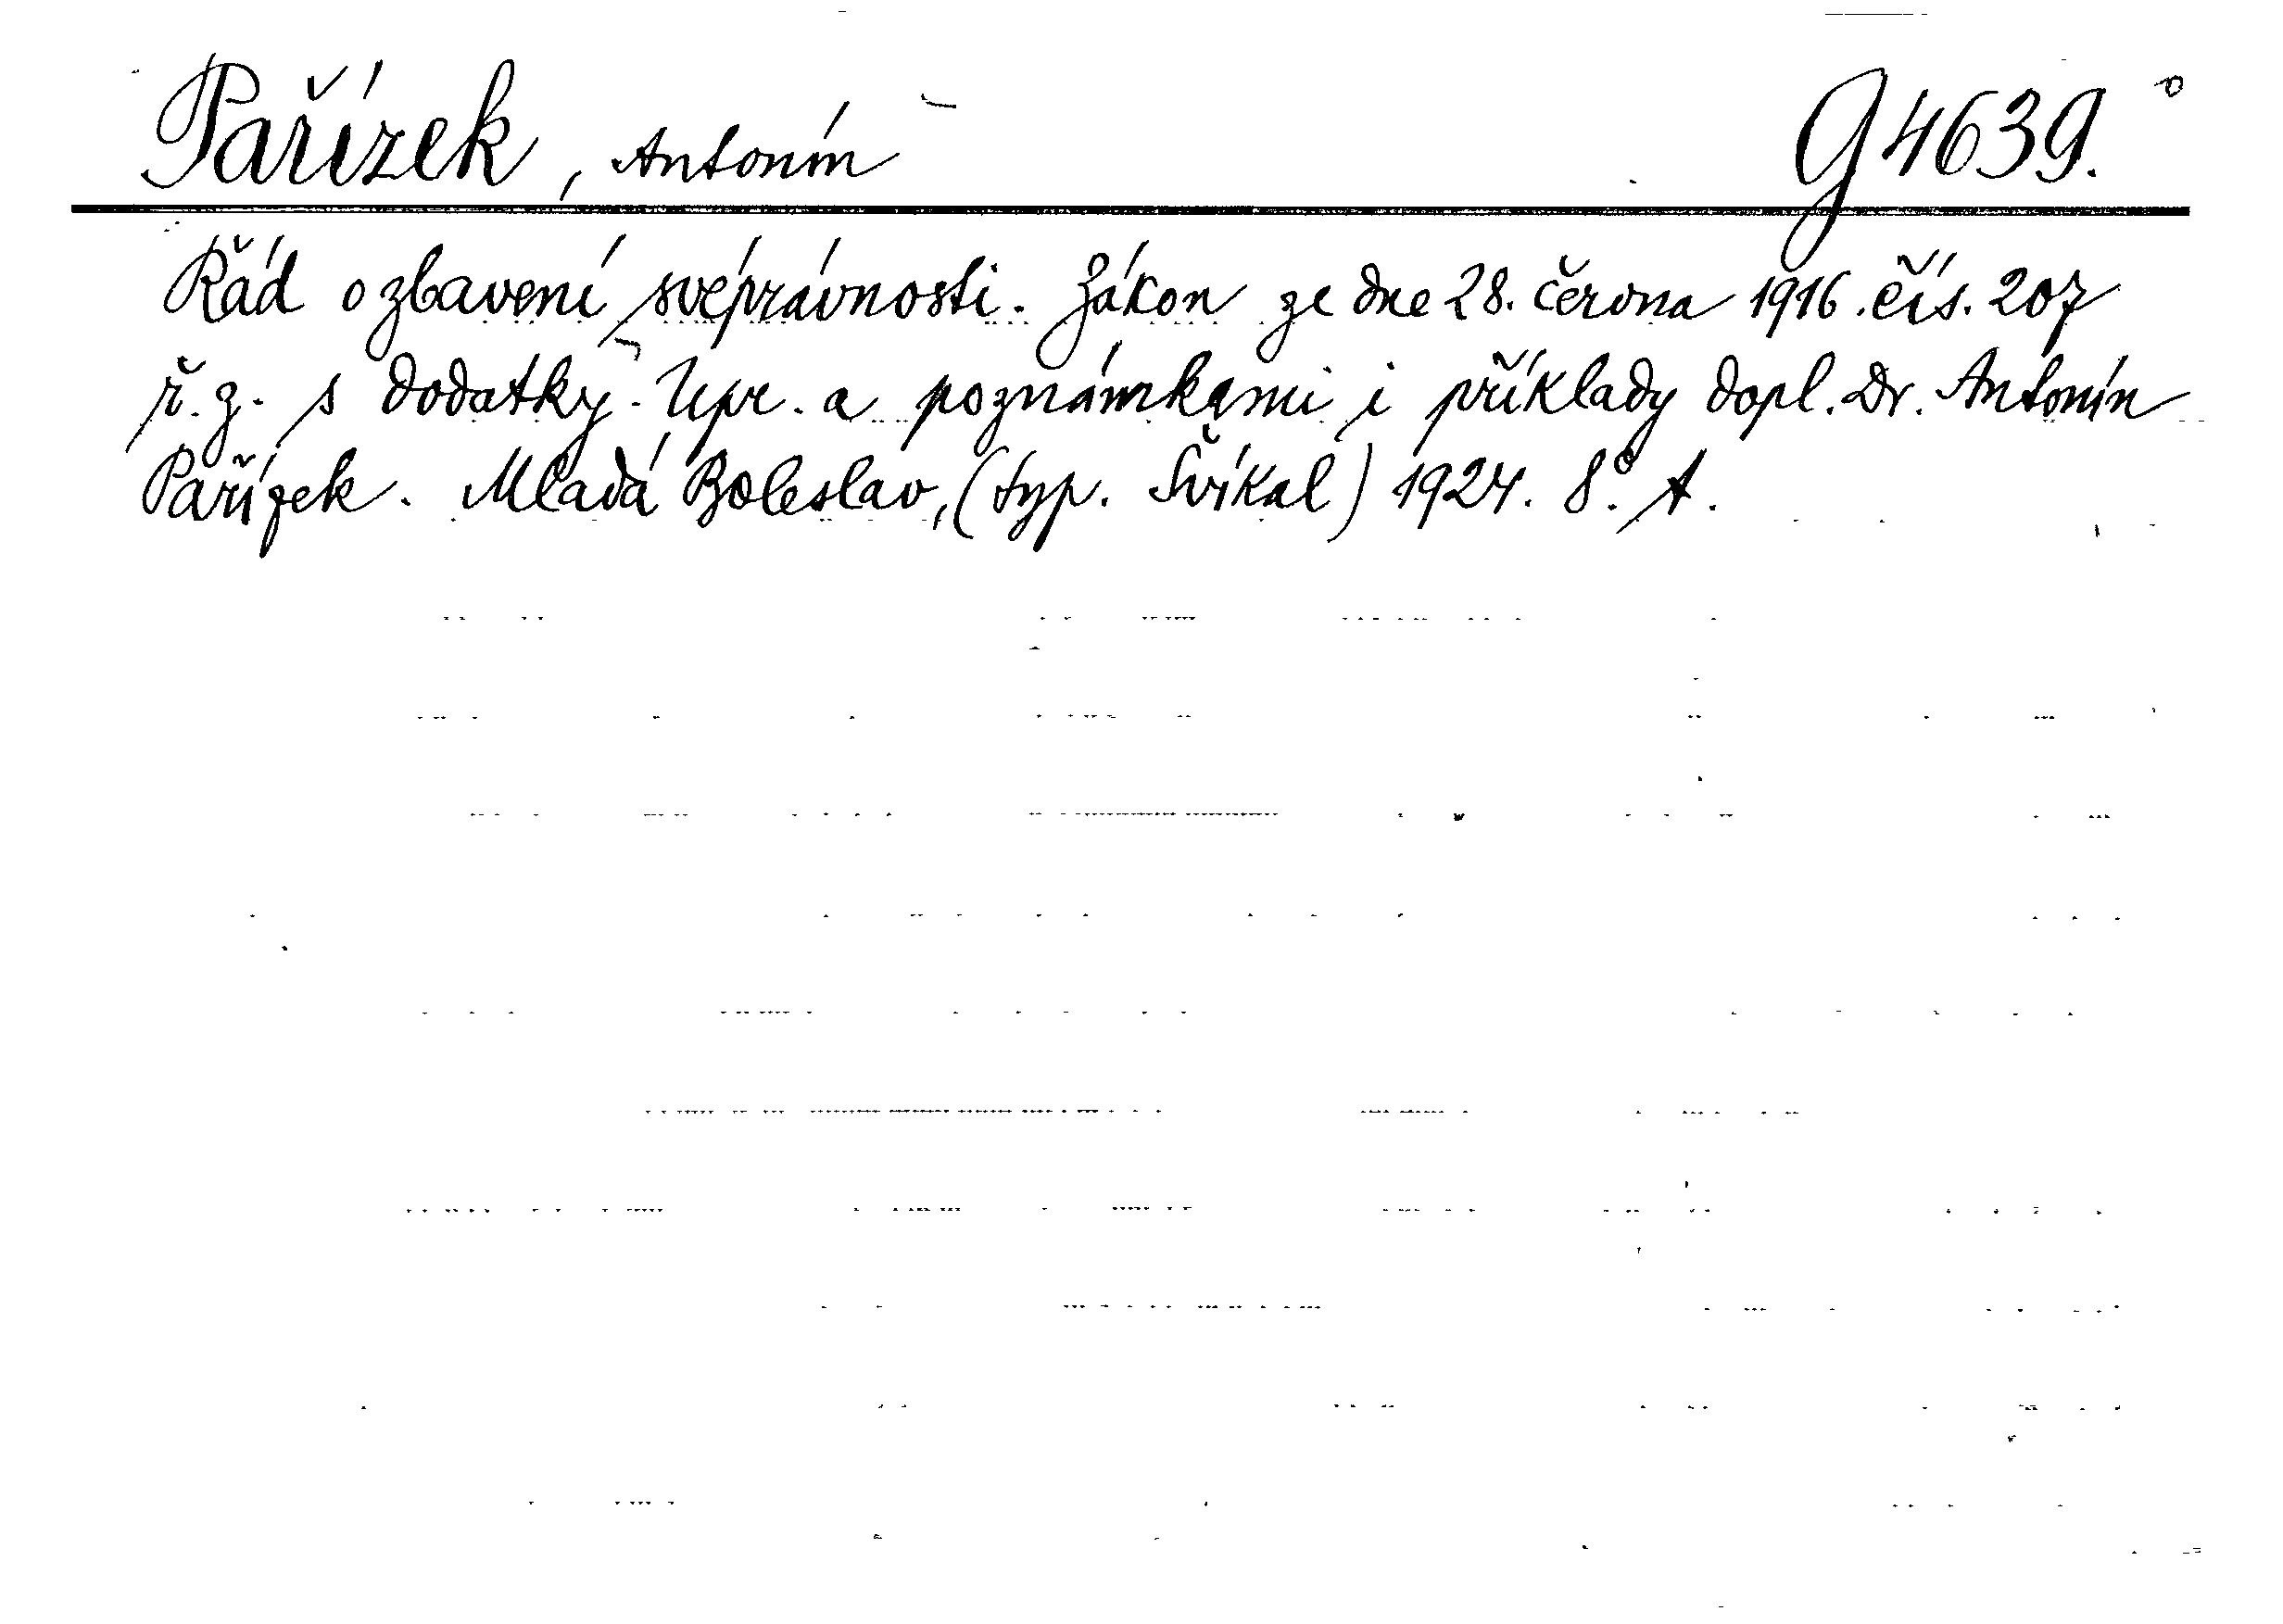 Pařízek, Antonín G 4639.
Řád o zbavení svéprávnosti. Zákon ze dne 28. června 1916. čís. 207
ř. z. s dodatky. Upr. a poznámkami i příklady dopl. Dr. Antonín
Pařízek. Mladá Boleslav, (typ. Švíkal) 1924. 8°. A.